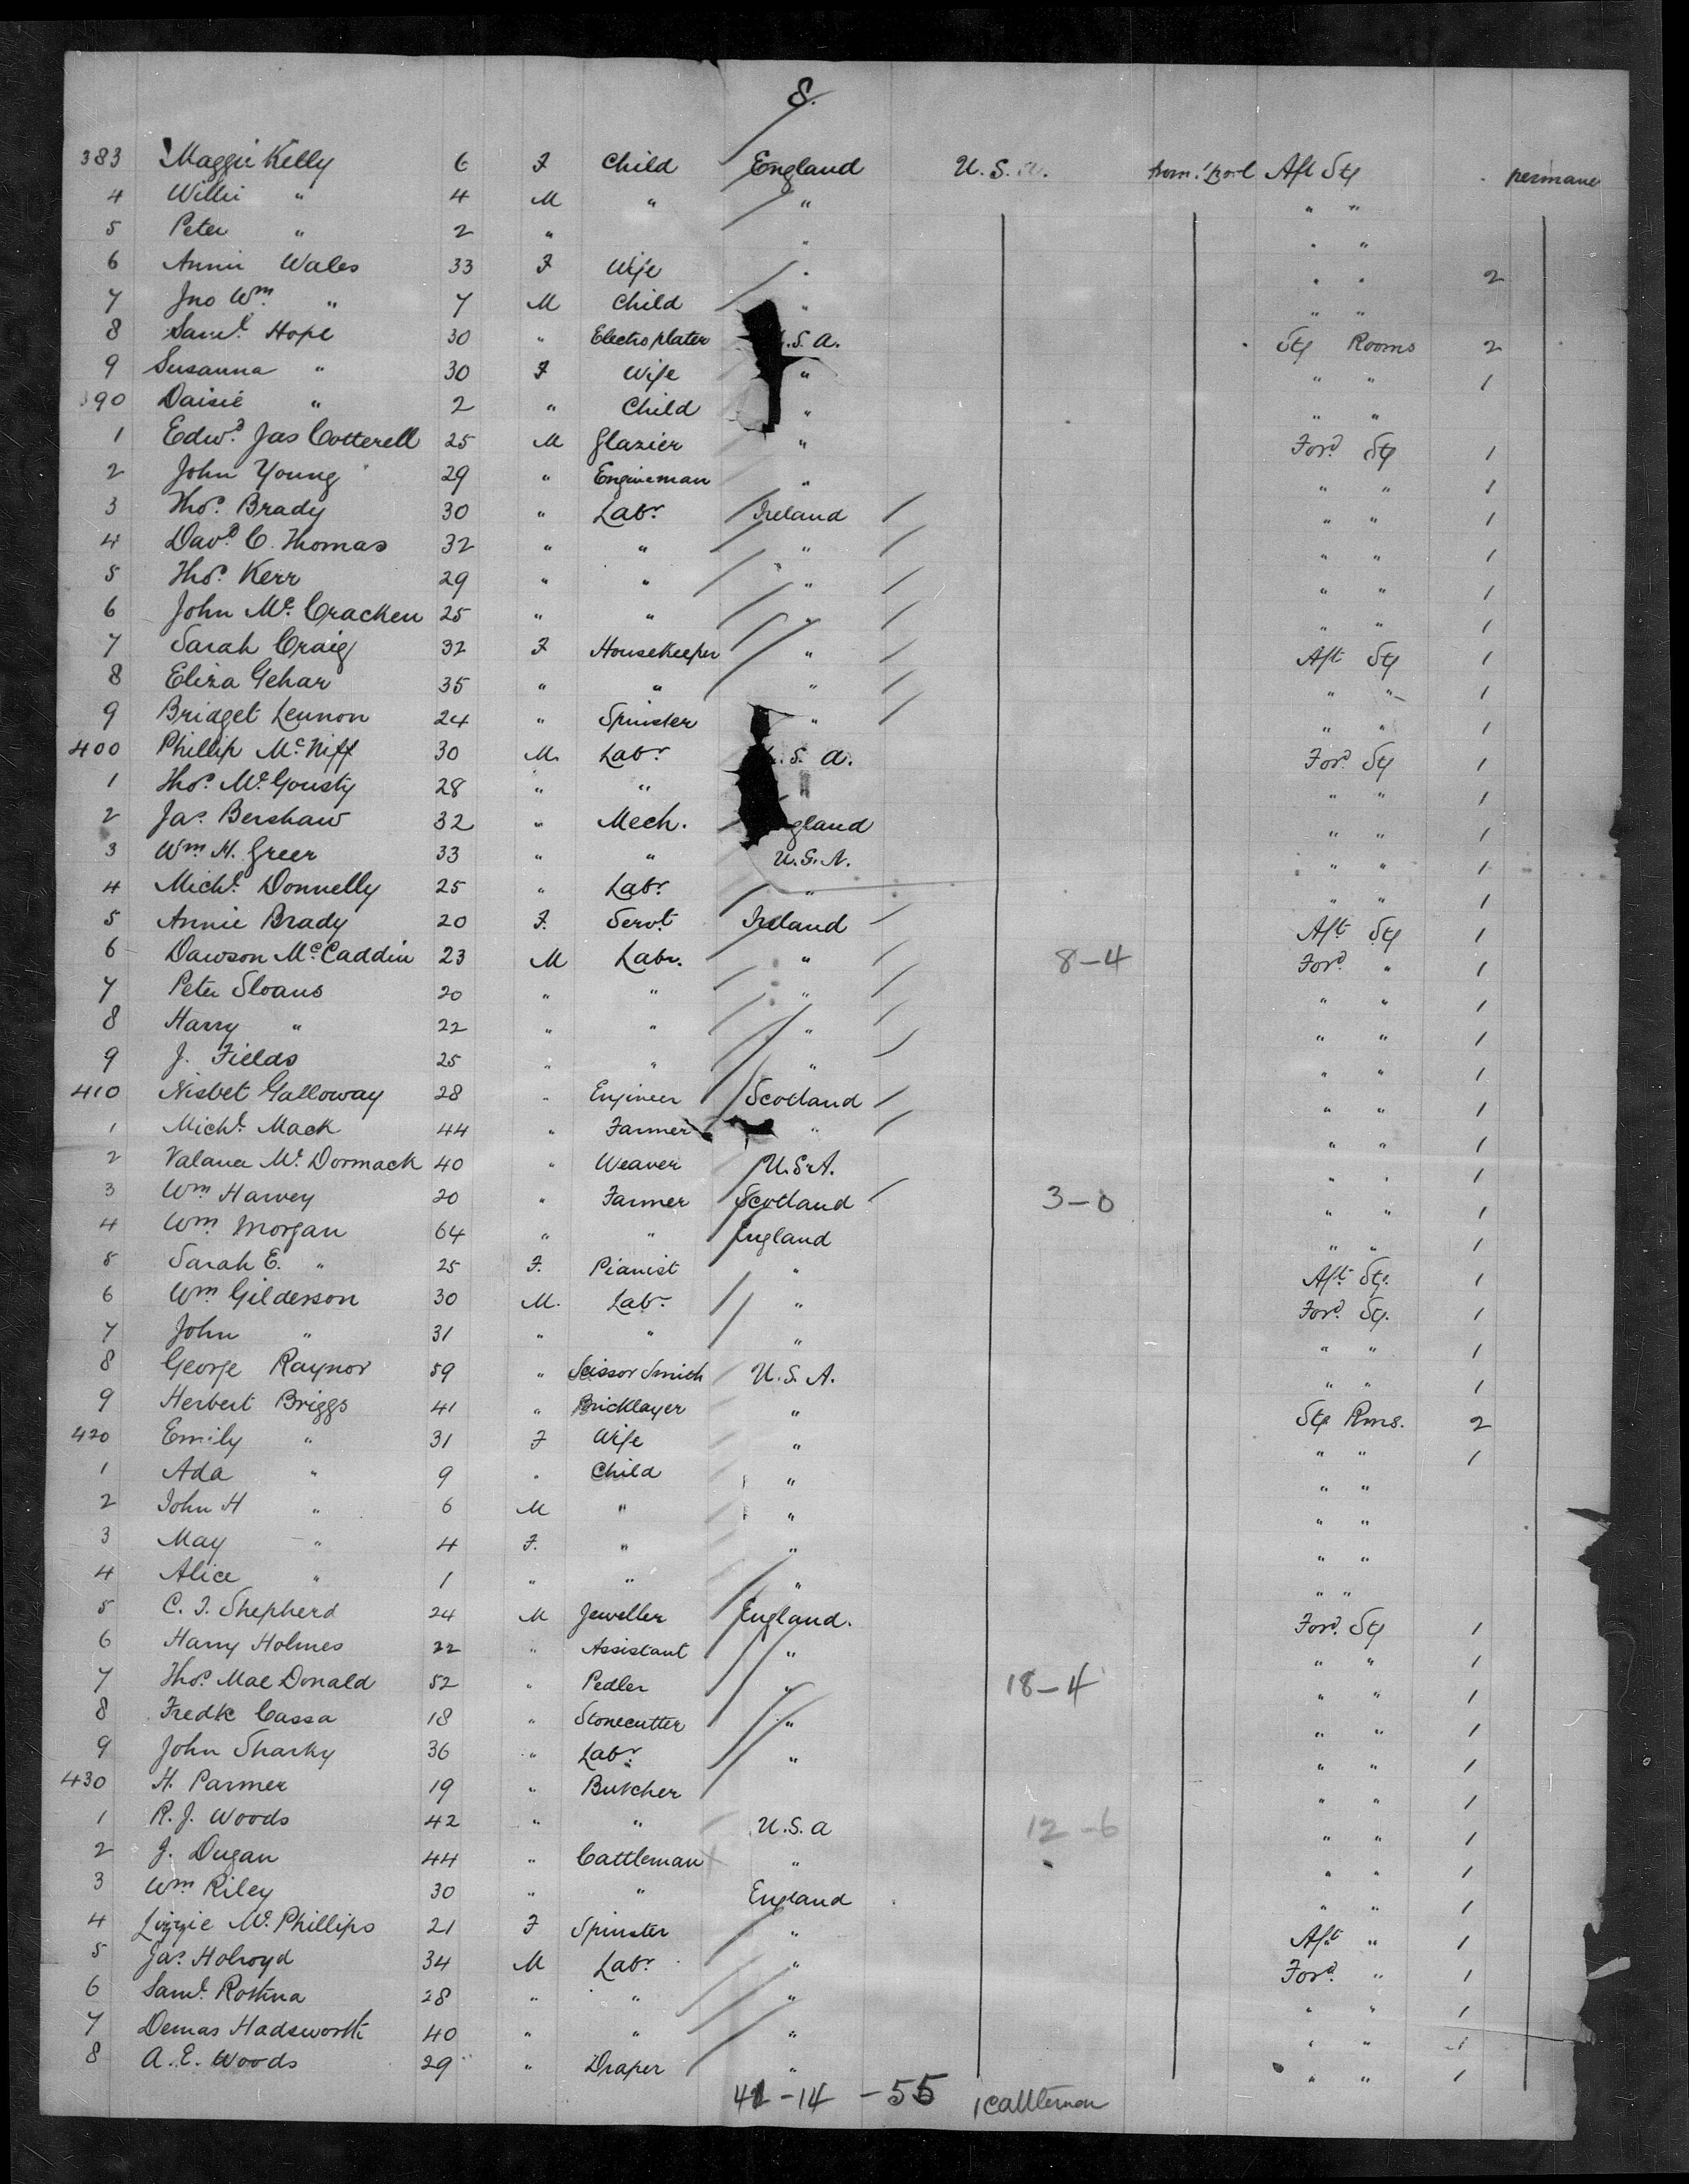 8.
383 Maggie Kelly 6 F Child England U.S.A. from Aft Stg permane
4 Willie " 4 M " " " "
5 Peter " 2 " " " "
6 Annie Wales 33 F Wife " " " 2
7 Jno Wm. " 7 M Child " " "
8 Saml. Hope 30 " Electroplater .S.A. Stg Rooms 2
9 Susanna " 30 F Wife " " " 1
390 Daisie " 2 " Child " " "
1 Edwd. Jas Cotterell 25 M Glazier " Ford. Stg 1
2 John Young 29 " Engineman " " " 1
3 Thos. Brady 30 " Labr. Ireland " " 1
4 Davd. C. Thomas 32 " " " " " 1
5 Thos. Kerr 29 " " " " " 1
6 John Mc. Cracken 25 " " " " " 1
7 Sarah Craig 32 F Housekeeper " Aft Stg 1
8 Eliza Gehar 35 " " " " " 1
9 Bridget Lennon 24 " Spinster " " " 1
400 Phillip Mc. Niff 30 M. Labr. .S.A. Ford. Stg 1
1 Thos. Mc. Gousty 28 " " " " " 1
2 Jas. Bershaw 32 " Mech. gland " " 1
3 Wm. H. Greer 33 " " U.S.A. " " 1
4 Michl. Donnelly 25 " Labr. " " " 1
5 Annie Brady 20 F. Servt. Ireland Aft Stg 1
6 Dawson Mc. Caddin 23 M Labr. " 8-4 Ford. " 1
7 Peter Sloans 20 " " " " " 1
8 Harry " 22 " " " " " 1
9 J. Fields 25 " " " " " 1
410 Nisbet Galloway 28 " Engineer Scotland " " 1
1 Michl. Mack 44 " Farmer " " " 1
2 Mc. Dormack 40 " Weaver U.S.A. " " 1
3 Wm Harvey 20 " Farmer Scotland 3-0 " " 1
4 Wm Morgan 64 " " England " " 1
5 Sarah E. " 25 F. Pianist " Aft. Stg. 1
6 Wm Gilderson 30 M. Labr. " Ford. Stg. 1
7 John " 31 " " " " " 1
8 George Raynor 59 " Scissor Smith U.S.A. " " 1
9 Herbert Briggs 41 " Bricklayer " Stg Rms. 2
420 Emily " 31 F Wife " " " 1
1 Ada " 9 " Child " " "
2 John H " 6 M " " " "
3 May " 4 F. " " " "
4 Alice " 1 " " " " "
5 C. J. Shepherd 24 M Jeweller England. Ford. Stg 1
6 Harry Holmes 22 " Assistant " " " 1
7 Thos. Mac Donald 52 " Pedler " 18-4 " " 1
8 Fredk Cassa 18 " Stonecutter " " " 1
9 John Sharky 36 " Labr. " " " 1
430 H. Parmer 19 " Butcher " " 1
1 R. J. Woods 42 " " U.S.a 12-6 " " 1
2 J. Dugan 44 " Cattleman " " " 1
3 Wm Riley 30 " " England " " 1
4 Lizzie Mc. Phillips 21 F Spinster " Aft " 1
5 Jas. Holroyd 34 M Labr. " Ford. " 1
6 Saml. 28 " " " " " 1
7 Demas Hadsworth 40 " " " " " 1
8 A. E. Woods 29 " Draper " " " 1
41-14 -55 1 cattleman